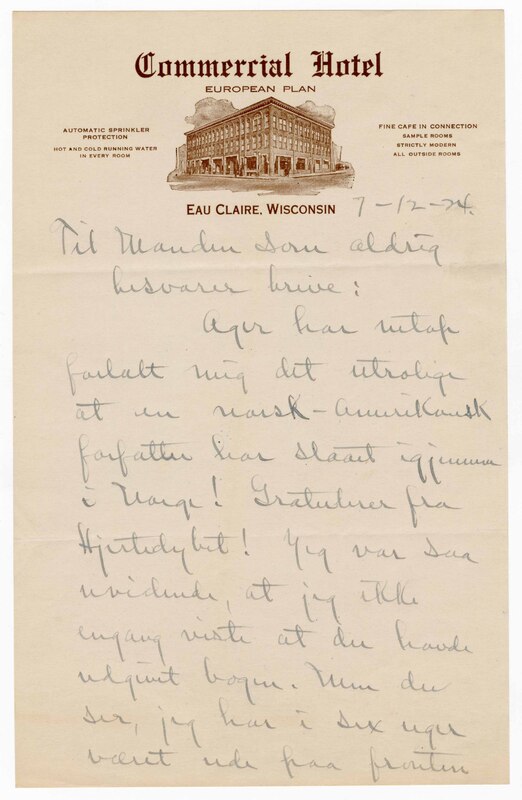 Commercial Hotel
EUROPEAN PLAN
AUTOMATIC SPRINKLER
PROTECTION
HOT AND COLD RUNNING WATER
IN EVERY ROOM
FINE CAFE IN CONNECTION
SAMPLE ROOMS
STRICTLY MODERN
ALL OUTSIDE ROOMS
EAU CLAIRE, WISCONSIN 7-12-24.
Til Manden som aldrig
besvarer breve:
Ager har netop
fortalt mig det utrolige
at en norsk-amerikansk
forfatter har slaaet igjennem
i Norge! Gratulerer fra
Hjertedybet! Jeg var saa
uvidende, at jeg ikke
engang viste at du havde
udgivet bogen. Men du
ser, jeg har i sex uger
været ude paa fronten